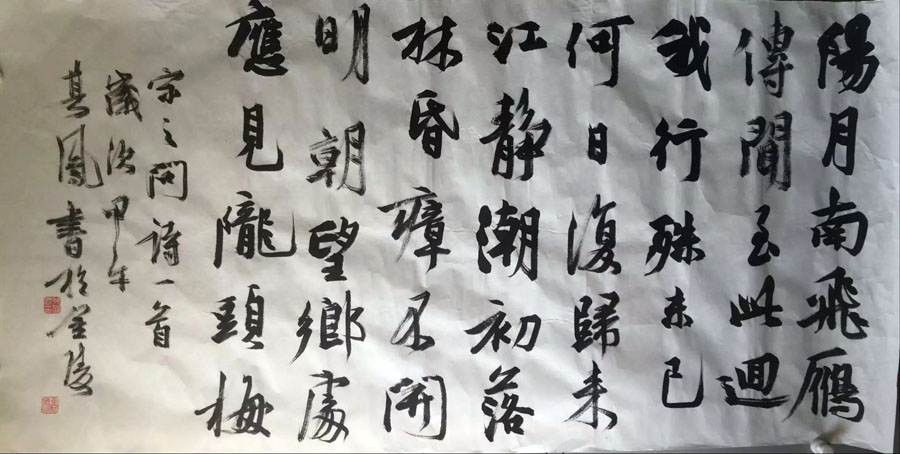 陽月南飛雁
傳聞至此迴
我行殊未已
何日復歸来
江静潮初落
林昏瘴不開
明朝望鄉處
應見隴頭梅
宋之问诗一首
歲次甲午
其鳳書於金陵